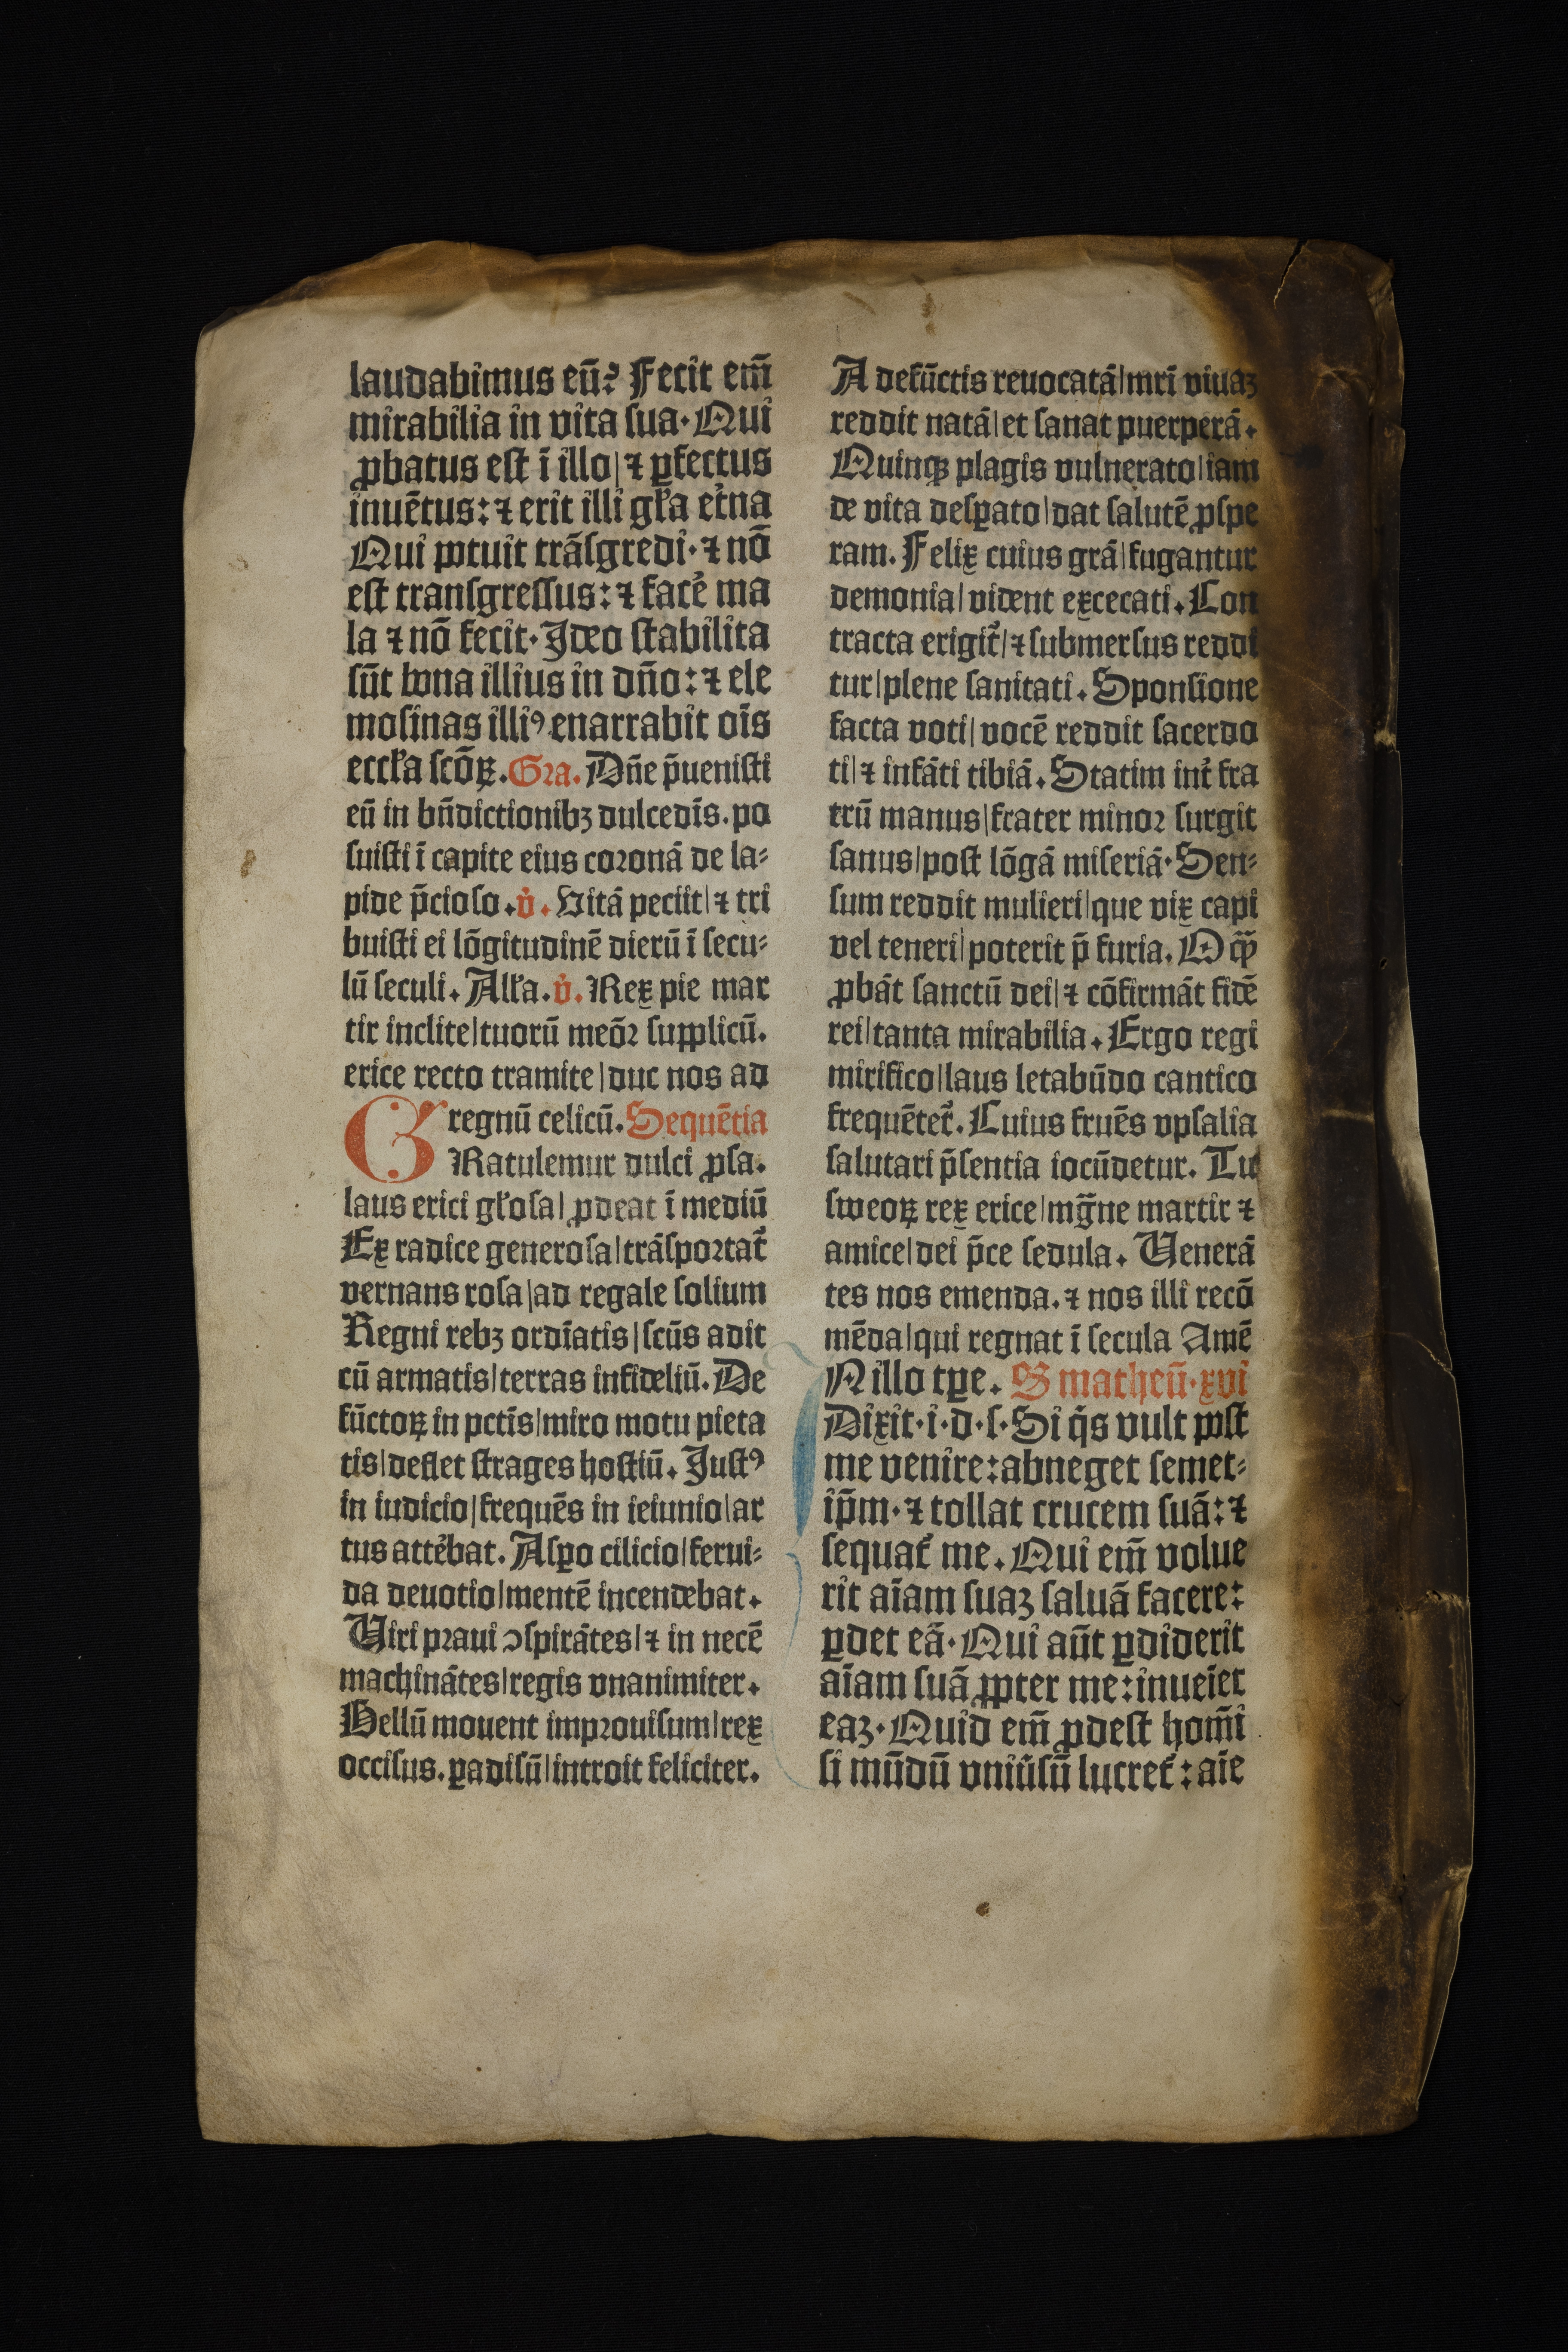 laudabimus eū? Fecit em̄
mirabilia in vita sua· Qui
ꝓbatus est ī illo| ⁊ ꝑfectus
inuētus: ⁊ erit illi gl̄a et̄na
Qui potuit trāsgredi· ⁊ nō
est transgressus: ⁊ facē ma
la ⁊ nō fecit· Ideo stabilita
sūt bona illius in dn̄o: ⁊ ele
mosinas illiꝰ enarrabit oīs
eccl̄a scōꝝ. Gra. Dn̄e p̄uenisti
eū in bn̄dictionibꝫ dulcedīs. po
suisti ī capite eius coronā de la⸗
pide p̄cioso. v̇. Vitā peciit| ⁊ tri
buisti ei lōgitudinē dierū ī secu⸗
lū seculi. All̄a. v̇. Rex pie mar
tir inclite| tuorū meōꝛ supplicū.
erice recto tramite| duc nos ad
regnū celicū. Sequētia
GRatulemur dulci ꝓsa.
laus erici gl̄osa| ꝓdeat ī mediū
Ex radice generosa| trāsportat᷑
vernans rosa| ad regale solium
Regni rebꝫ ordīatis| scūs adit
cū armatis| terras infideliū. De
fūctoꝝ in pctīs| miro motu pieta
tis| deflet strages hostiū. Justꝰ
in iudicio| frequēs in ieiunio| ar
tus attēbat. Asꝑo cilicio| ferui⸗
da deuotio| mentē incendebat.
Viri praui ↄspirātes| ⁊ in necē
machinātes| regis vnanimiter.
Bellū mouent improuisum| rex
occisus. ꝑadisū| introit feliciter.
A defūctis reuocatā| mrī viuaꝫ
reddit natā| et sanat puerperā.
Quinqꝫ plagis vulnerato| iam
de vita desꝑato| dat salutē ꝓspe
ram. Felix cuius grā| fugantur
demonia| vident excecati. Con
tracta erigit᷑| ⁊ submersus reddi
tur| plene sanitati. Sponsione
facta voti| vocē reddit sacerdo
ti| ⁊ infāti tibiā. Statim int̄ fra
trū manus| frater minor surgit
sanus| post lōgā miseriā· Sen⸗
sum reddit mulieri| que vix capi
vel teneri| poterit p̄ furia. O qꝫ̄
ꝓbāt sanctū dei| ⁊ cōfirmāt fidē
rei| tanta mirabilia. Ergo regi
mirifico| laus letabūdo cantico
frequētet᷑. Cuius fruēs vpsalia
salutari p̄sentia iocūdetur. Tu
sweoꝝ rex erice| mḡne martir ⁊
amice| dei p̄ce sedula. Venerā
tes nos emenda. ⁊ nos illi recō
mēda| qui regnat ī secula Amē
N illo tꝑe. S matheū· xvi
Dixit· i· d· s· Si q̇s vult post
me venire: abneget semet⸗
ip̄m· ⁊ tollat crucem suā: ⁊
sequat᷑ me. Qui em̄ volue
rit aīam suaꝫ saluā facere:
ꝑdet eā· Qui aūt ꝑdiderit
aīam suā ꝓpter me: inueīet
eaꝫ· Quid em̄ ꝓdest hom̄i
si mūdū vniūsū lucret᷑: aīe